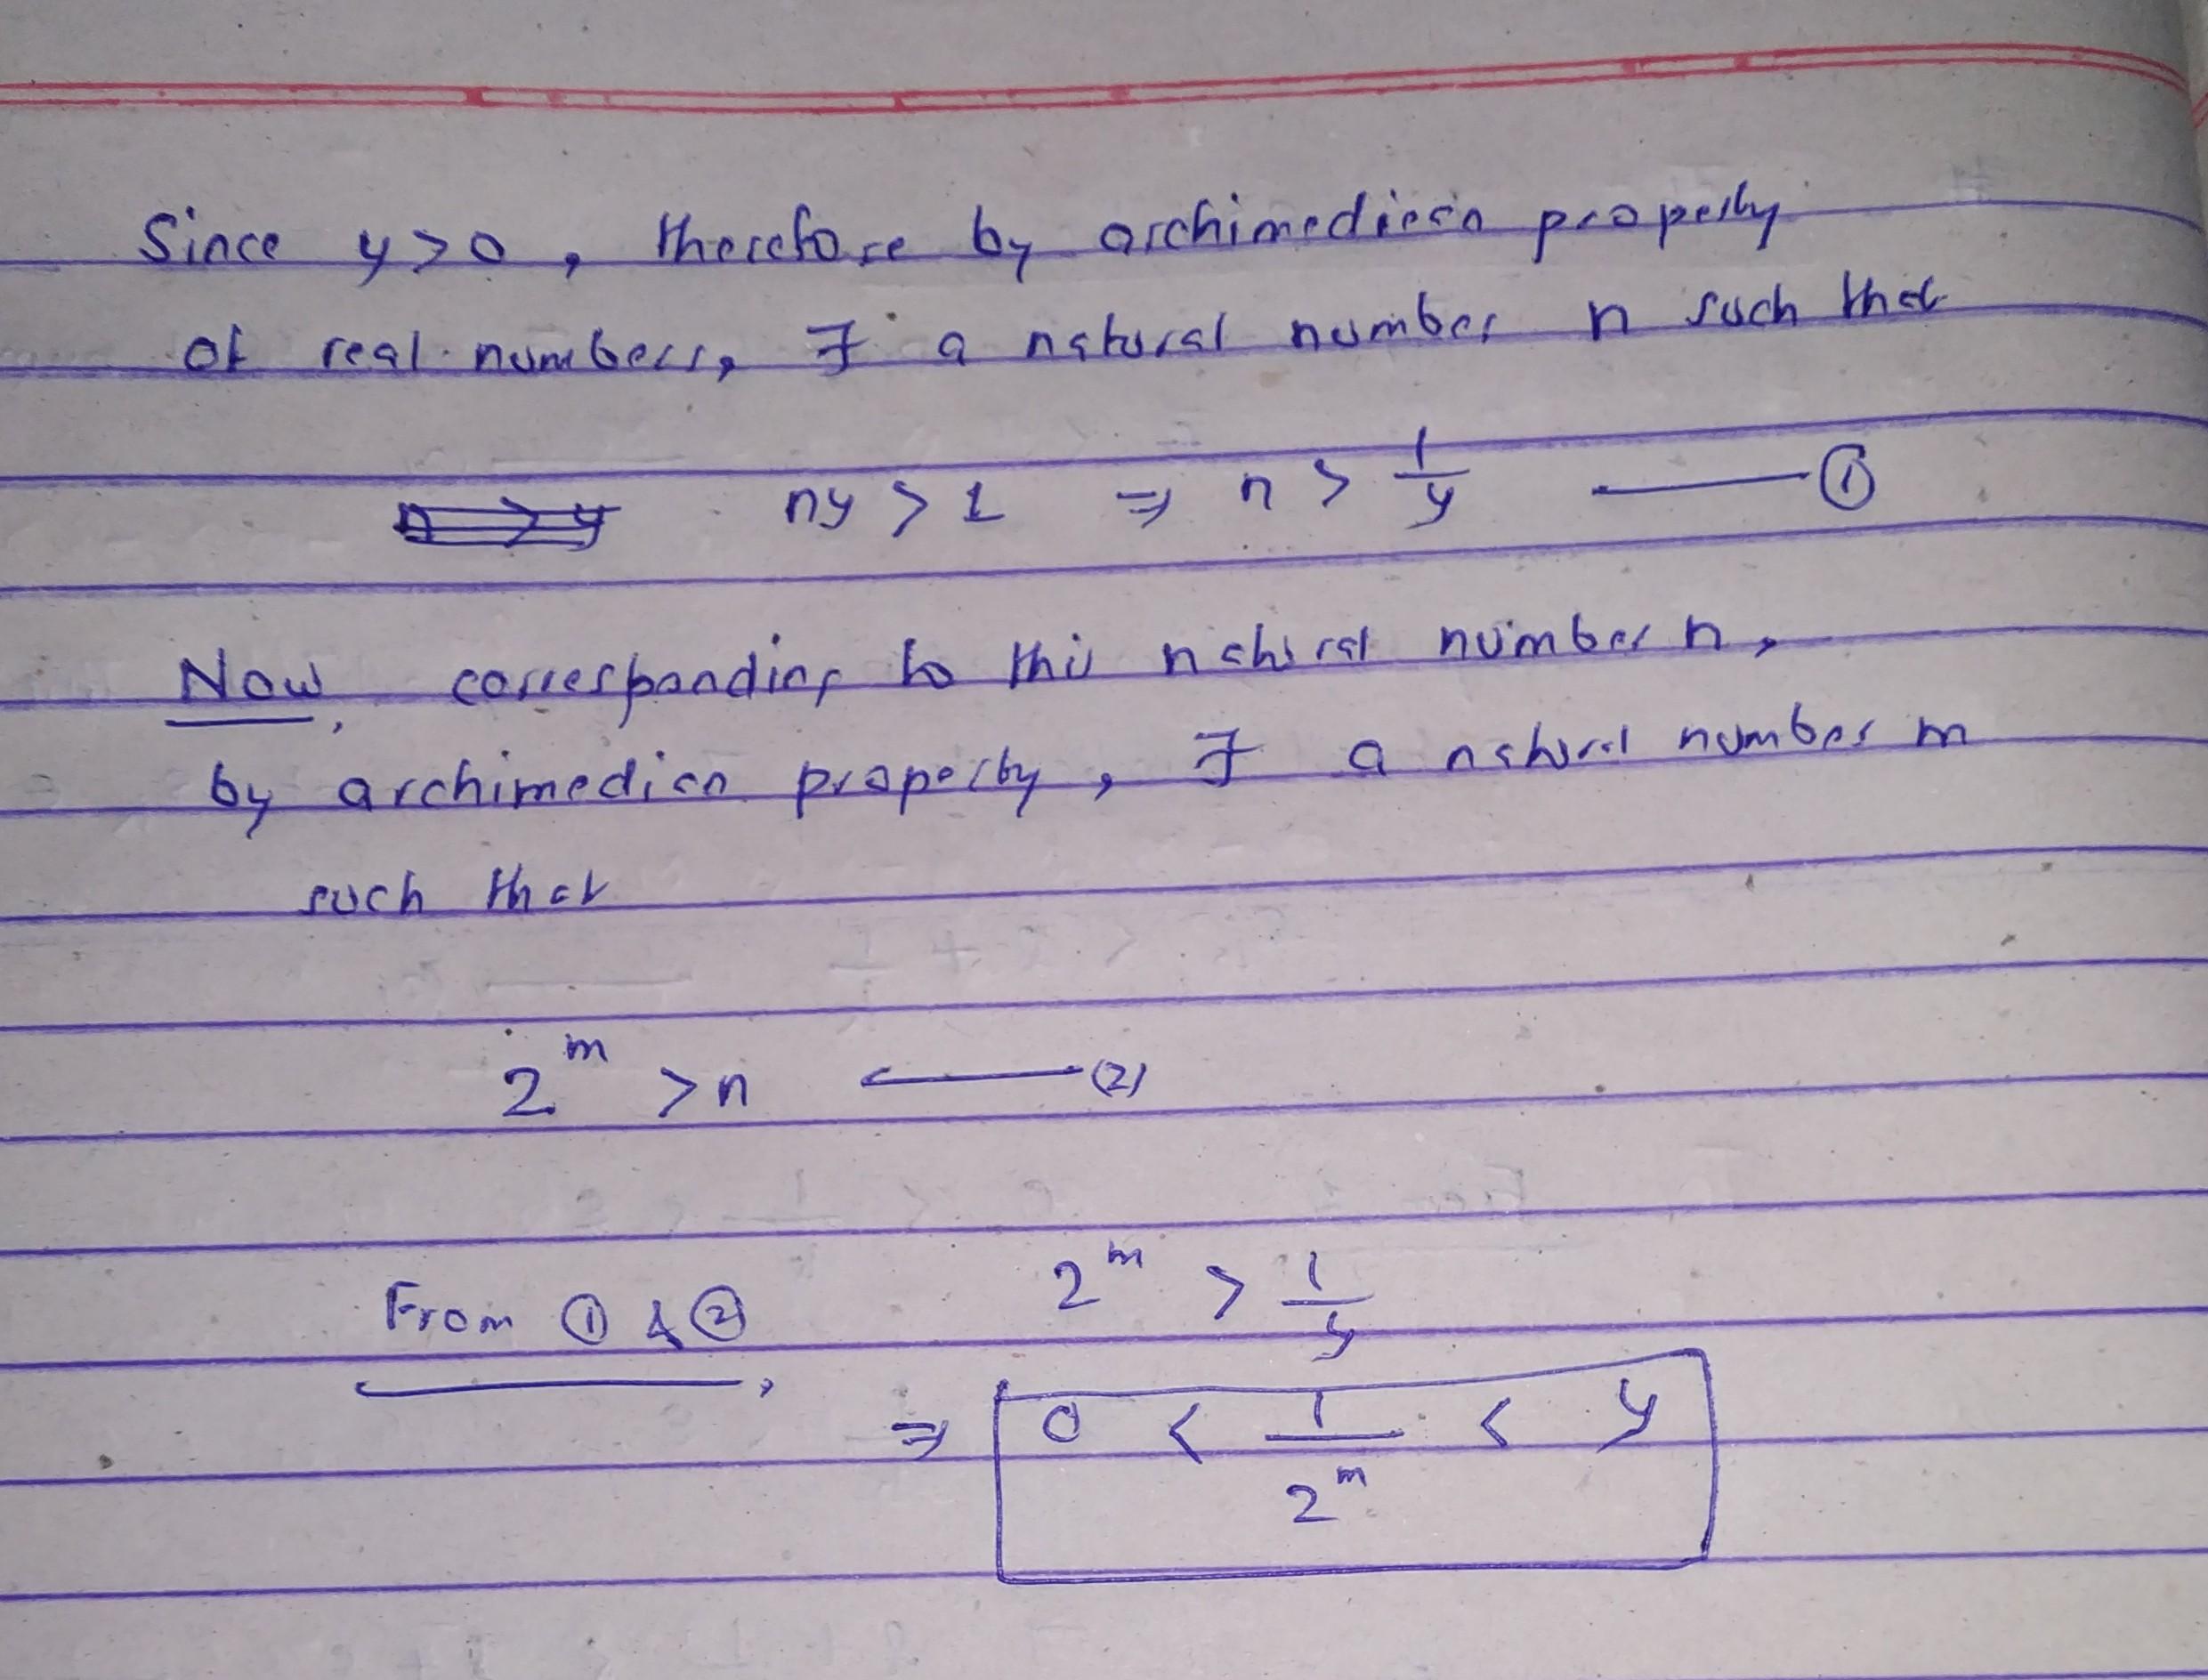 Since y > 0, therefore by archimedian property
of real numbers, ∃ a natural number n such that
ny > 1 ⇒ n > 1/y —— ①
Now, corresponding to this natural number n,
by archimedian property, ∃ a natural number m
such that
2^m > n —— (2)
From ① & ②, 2^m > 1/y
⇒ 0 < 1/2^m < y